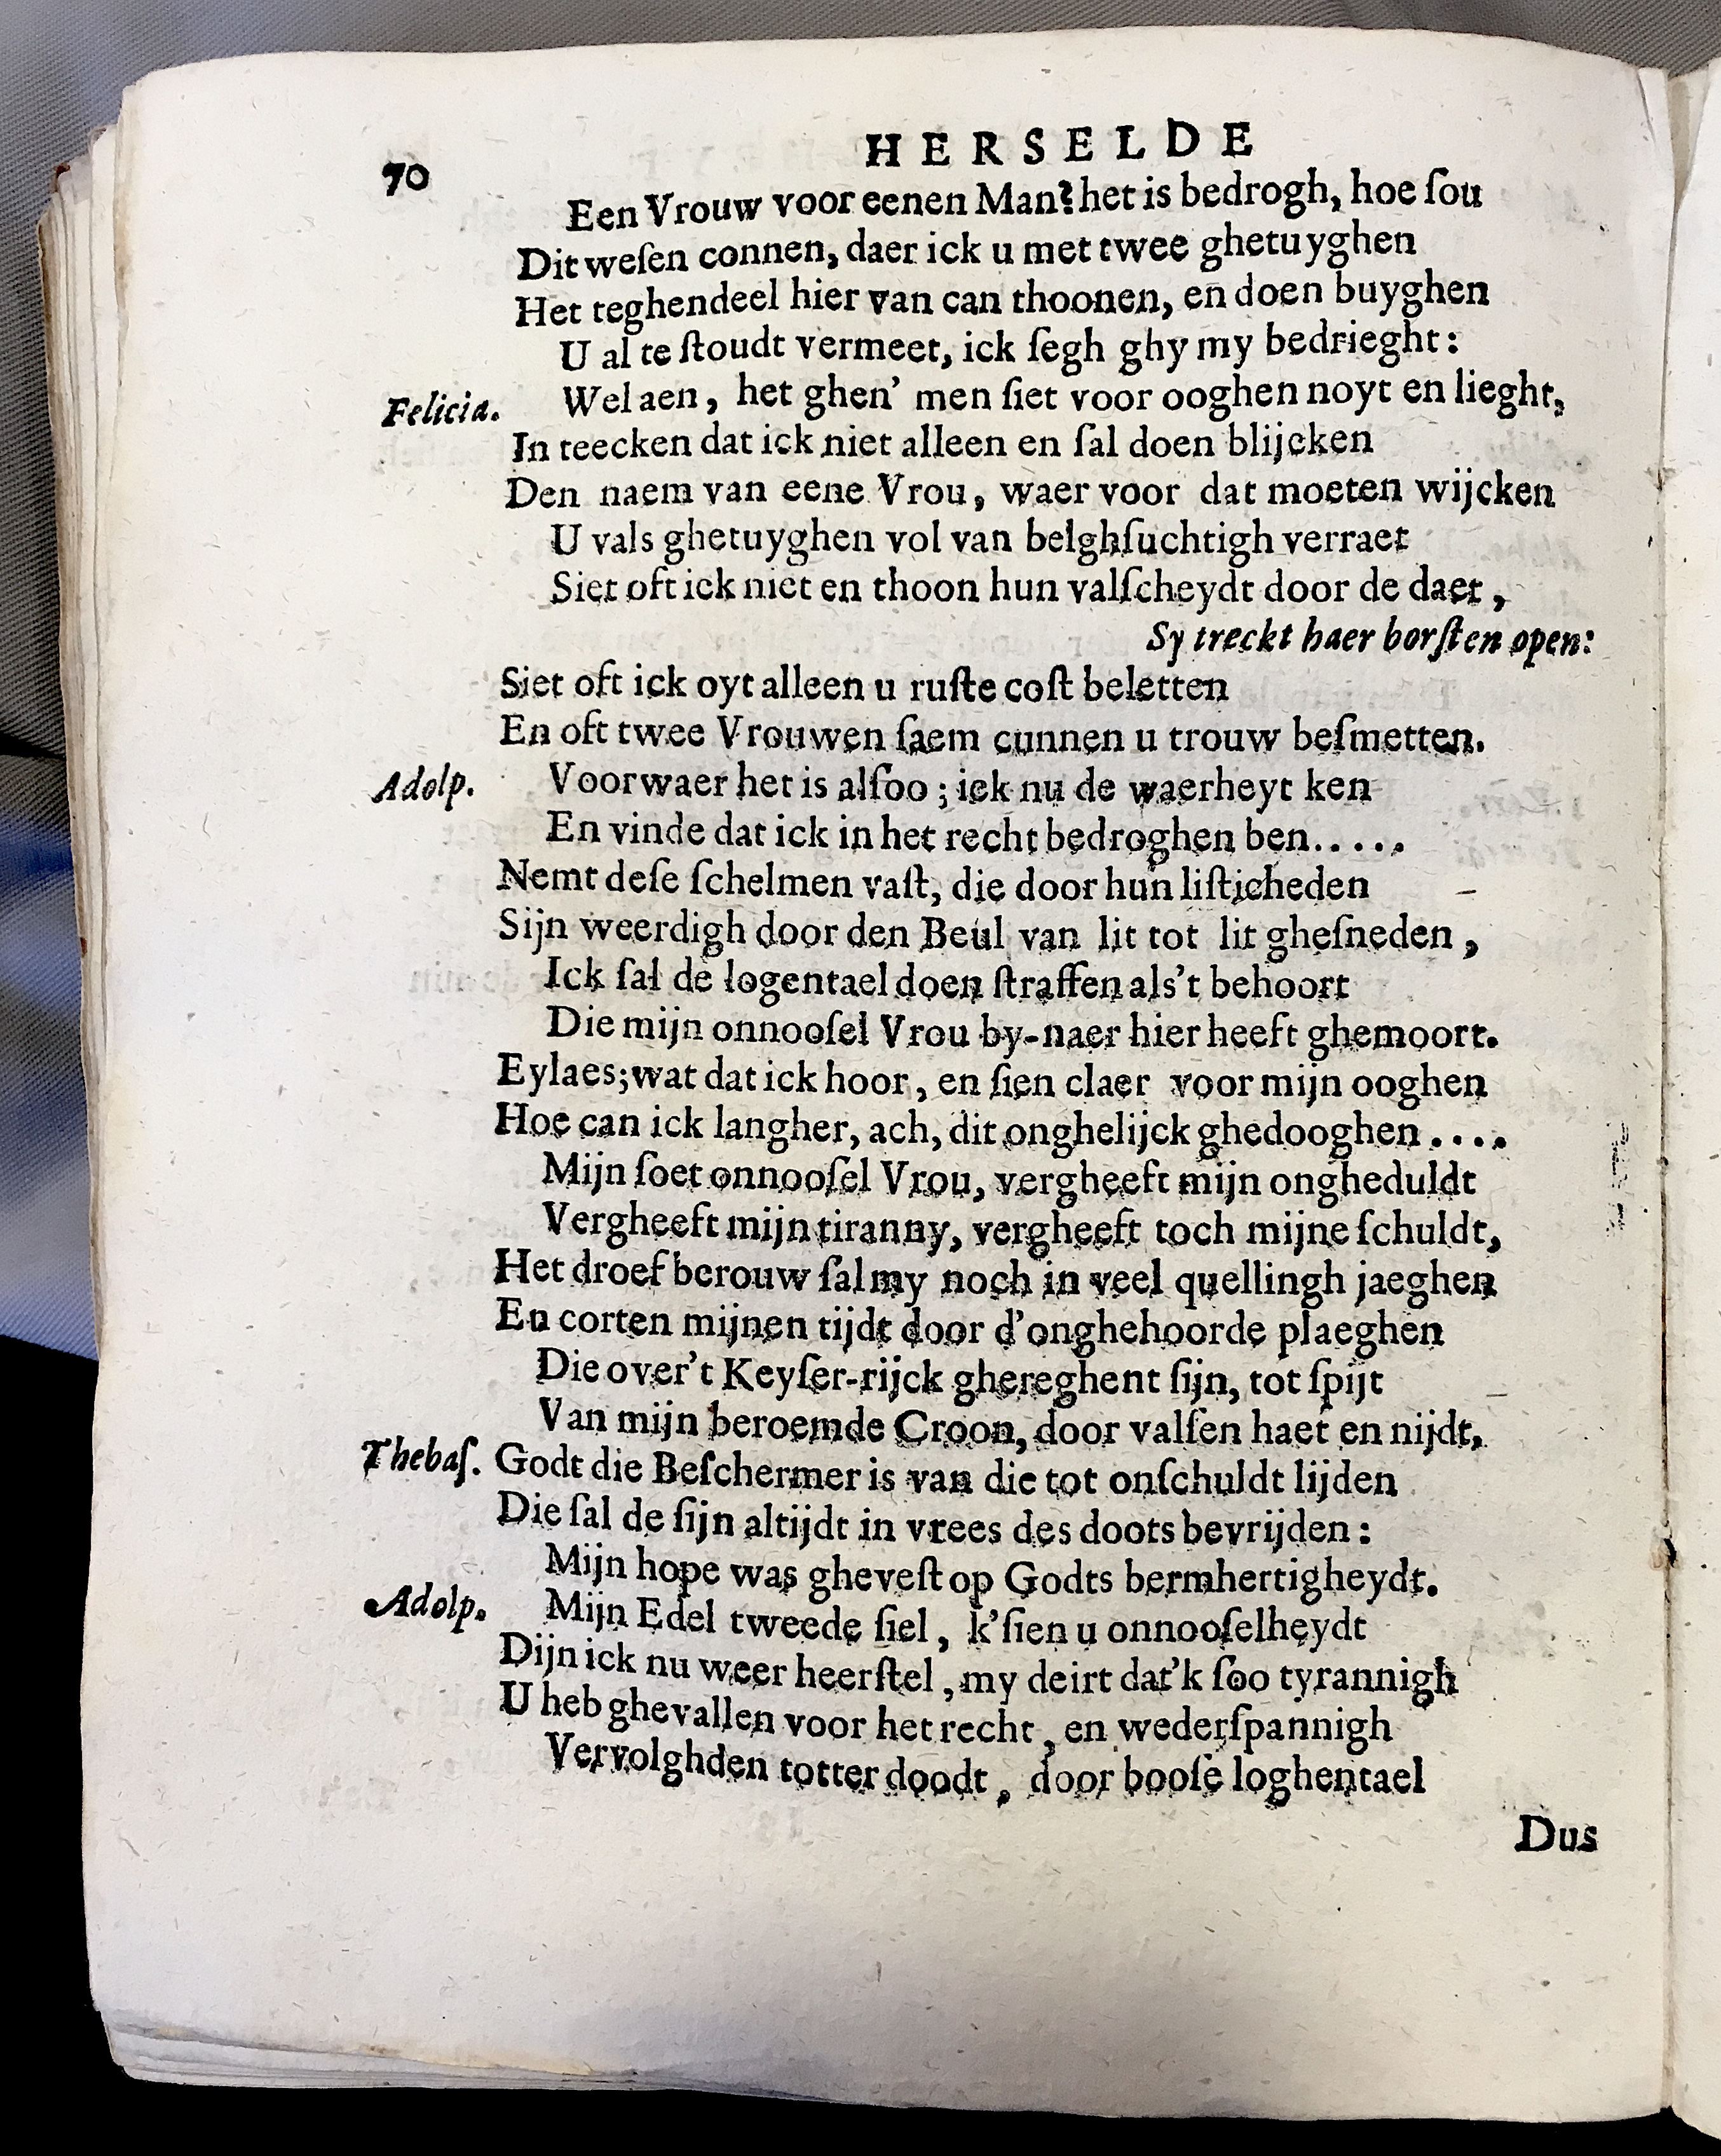 70 HERSELDE
Een Vrouw voor eenen Man? het is bedrogh, hoe ſou
Dit weſen connen, daer ick u met twee ghetuyghen
Het teghendeel hier van can thoonen, en doen buyghen
U al te ſtoudt vermeet, ick ſegh ghy my bedrieght:
Felicia. Wel aen, het ghen' men ſiet voor ooghen noyt en lieght,
In teecken dat ick niet alleen en ſal doen blijcken
Den naem van eene Vrou, waer voor dat moeten wijcken
U vals ghetuyghen vol van belghſuchtigh verraet
Siet oft ick niet en thoon hun valſcheydt door de daet,
Sy treckt haer borſten open:
Siet oft ick oyt alleen u ruſte coſt beletten
En oft twee Vrouwen ſaem cunnen u trouw beſmetten.
Adolp. Voorwaer het is alſoo; ick nu de waerheyt ken
En vinde dat ick in het recht bedroghen ben.....
Nemt deſe ſchelmen vaſt, die door hun liſticheden
Sijn weerdigh door den Beul van lit tot lit gheſneden,
Ick ſal de logentael doen ſtraffen als't behoort
Die mijn onnooſel Vrou by-naer hier heeft ghemoort.
Eylaes; wat dat ick hoor, en ſien claer voor mijn ooghen
Hoe can ick langher, ach, dit onghelijck ghedooghen....
Mijn ſoet onnooſel Vrou, vergheeft mijn ongheduldt
Vergheeft mijn tiranny, vergheeft toch mijne ſchuldt,
Het droef berouw ſal my noch in veel quellingh jaeghen
En corten mijnen tijdt door d'onghehoorde plaeghen
Die over't Keyſer-rijck ghereghent ſijn, tot ſpijt
Van mijn beroemde Croon, door valſen haet en nijdt,
Thebaſ. Godt die Beſchermer is van die tot onſchuldt lijden
Die ſal de ſijn altijdt in vrees des doots bevrijden:
Mijn hope was gheveſt op Godts bermhertigheydt.
Adolp. Mijn Edel tweede ſiel, k'ſien u onnooſelheydt
Dijn ick nu weer heerſtel, my deirt dat'k ſoo tyrannigh
U heb ghevallen voor het recht, en wederſpannigh
Vervolghden totter doodt, door booſe loghentael
Dus